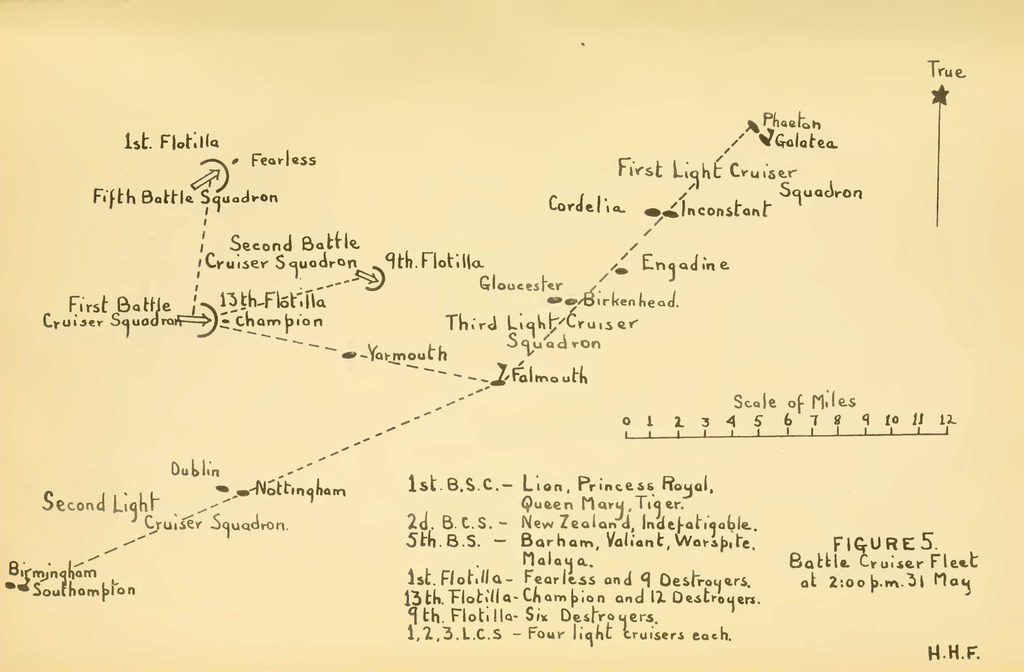 True
1st. Flotilla
Fearless
Fifth Battle Squadron
Phaeton
Galatea
First Light Cruiser
Squadron
Cordelia
Inconstant
Second Battle
Cruiser Squadron
9th. Flotilla
Engadine
Gloucester
Birkenhead.
First Battle
Cruiser Squadron
13th-Flotilla
Champion
Third Light Cruiser
Squadron
Yarmouth
Falmouth
Scale of Miles
0 1 2 3 4 5 6 7 8 9 10 11 12
Dublin
Nottingham
Second Light
Cruiser Squadron.
Birmingham
Southampton
1st. B.S.C. - Lion, Princess Royal,
Queen Mary, Tiger.
2d. B.C.S. - New Zealand, Indefatigable.
5th. B.S. - Barham, Valiant, Warspite,
Malaya.
1st. Flotilla - Fearless and 9 Destroyers.
13th. Flotilla - Champion and 12 Destroyers.
9th. Flotilla - Six Destroyers.
1, 2, 3. L.C.S - Four light cruisers each.
FIGURE 5.
Battle Cruiser Fleet
at 2:00 p.m. 31 May
H.H.F.